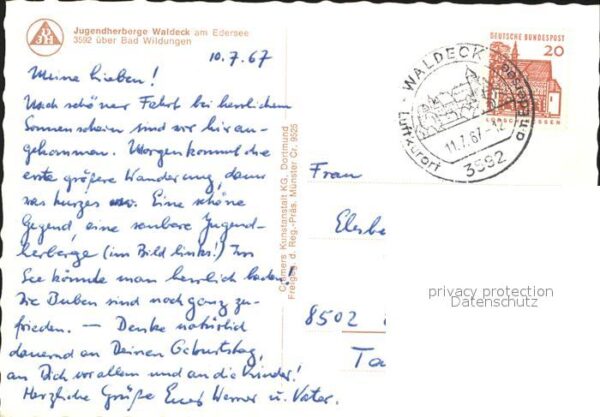 Jugendherberge Waldeck am Edersee
3592 über Bad Wildungen
10.7.67
Meine Lieben!
Nach schöner Fahrt bei herrlichem
Sonnenschein sind wir hier an-
gekommen. Morgen kommt die
erste größere Wanderung, dann
was kurzes. Eine schöne
Gegend, eine saubere Jugend-
herberge (im Bild links!) Im
See könnte man herrlich baden!
Die Buben sind noch ganz zu-
frieden. — Denke natürlich
dauernd an Deinen Geburtstag,
an Dich vor allem und an die Kinder!
Herzliche Grüße Euer Werner u. Vater.
Cramers Kunstanstalt KG, Dortmund
Freigeg. d. Reg.-Präs. Münster Cr. 9525
DEUTSCHE BUNDESPOST
20
WALDECK
Luftkurort
11.7.67-12
3592
Frau
Elsbe
8502
Ta
privacy protection
Datenschutz